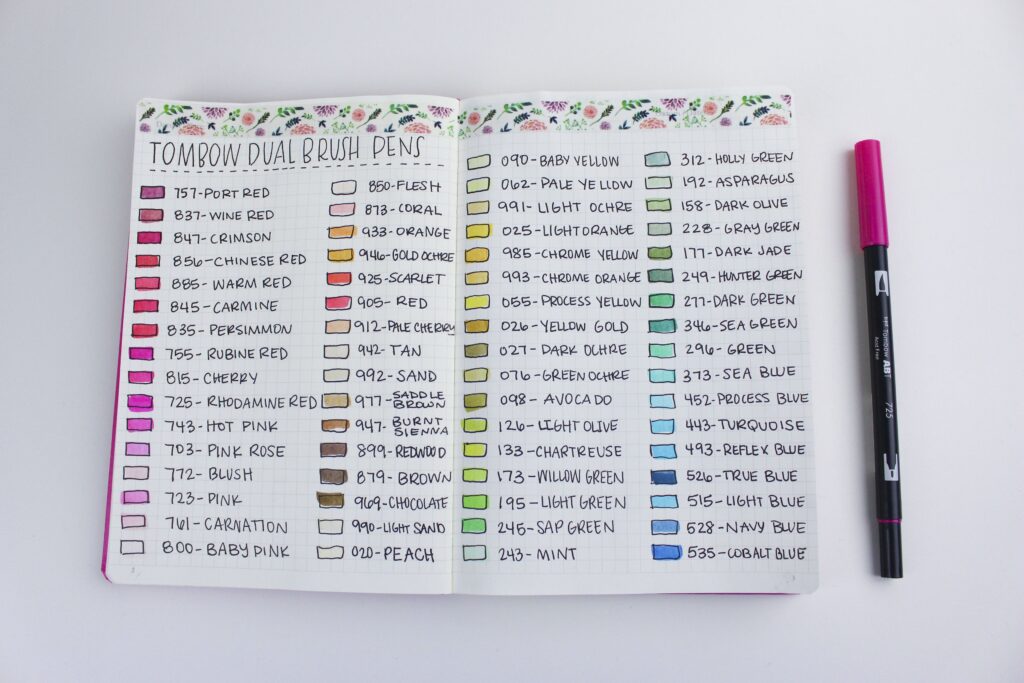 TOMBOW DUAL BRUSH PENS
757-PORT RED
837-WINE RED
847-CRIMSON
856-CHINESE RED
885-WARM RED
845-CARMINE
835-PERSIMMON
755-RUBINE RED
815-CHERRY
725-RHODAMINE RED
743-HOT PINK
703-PINK ROSE
772-BLUSH
723-PINK
761-CARNATION
800-BABY PINK
850-FLESH
873-CORAL
933-ORANGE
946-GOLD OCHRE
925-SCARLET
905-RED
912-PALE CHERRY
942-TAN
992-SAND
977-SADDLE
BROWN
947-BURNT
SIENNA
899-REDWOOD
879-BROWN
969-CHOCOLATE
990-LIGHT SAND
020-PEACH
090-BABY YELLOW
062-PALE YELLOW
991-LIGHT OCHRE
025-LIGHT ORANGE
985-CHROME YELLOW
993-CHROME ORANGE
055-PROCESS YELLOW
026-YELLOW GOLD
027-DARK OCHRE
076-GREEN OCHRE
098-AVOCADO
126-LIGHT OLIVE
133-CHARTREUSE
173-WILLOW GREEN
195-LIGHT GREEN
245-SAP GREEN
243-MINT
312-HOLLY GREEN
192-ASPARAGUS
158-DARK OLIVE
228-GRAY GREEN
177-DARK JADE
249-HUNTER GREEN
277-DARK GREEN
346-SEA GREEN
296-GREEN
373-SEA BLUE
452-PROCESS BLUE
443-TURQUOISE
493-REFLEX BLUE
526-TRUE BLUE
515-LIGHT BLUE
528-NAVY BLUE
535-COBALT BLUE
3
3
Tombow ABT
Acid Free
725